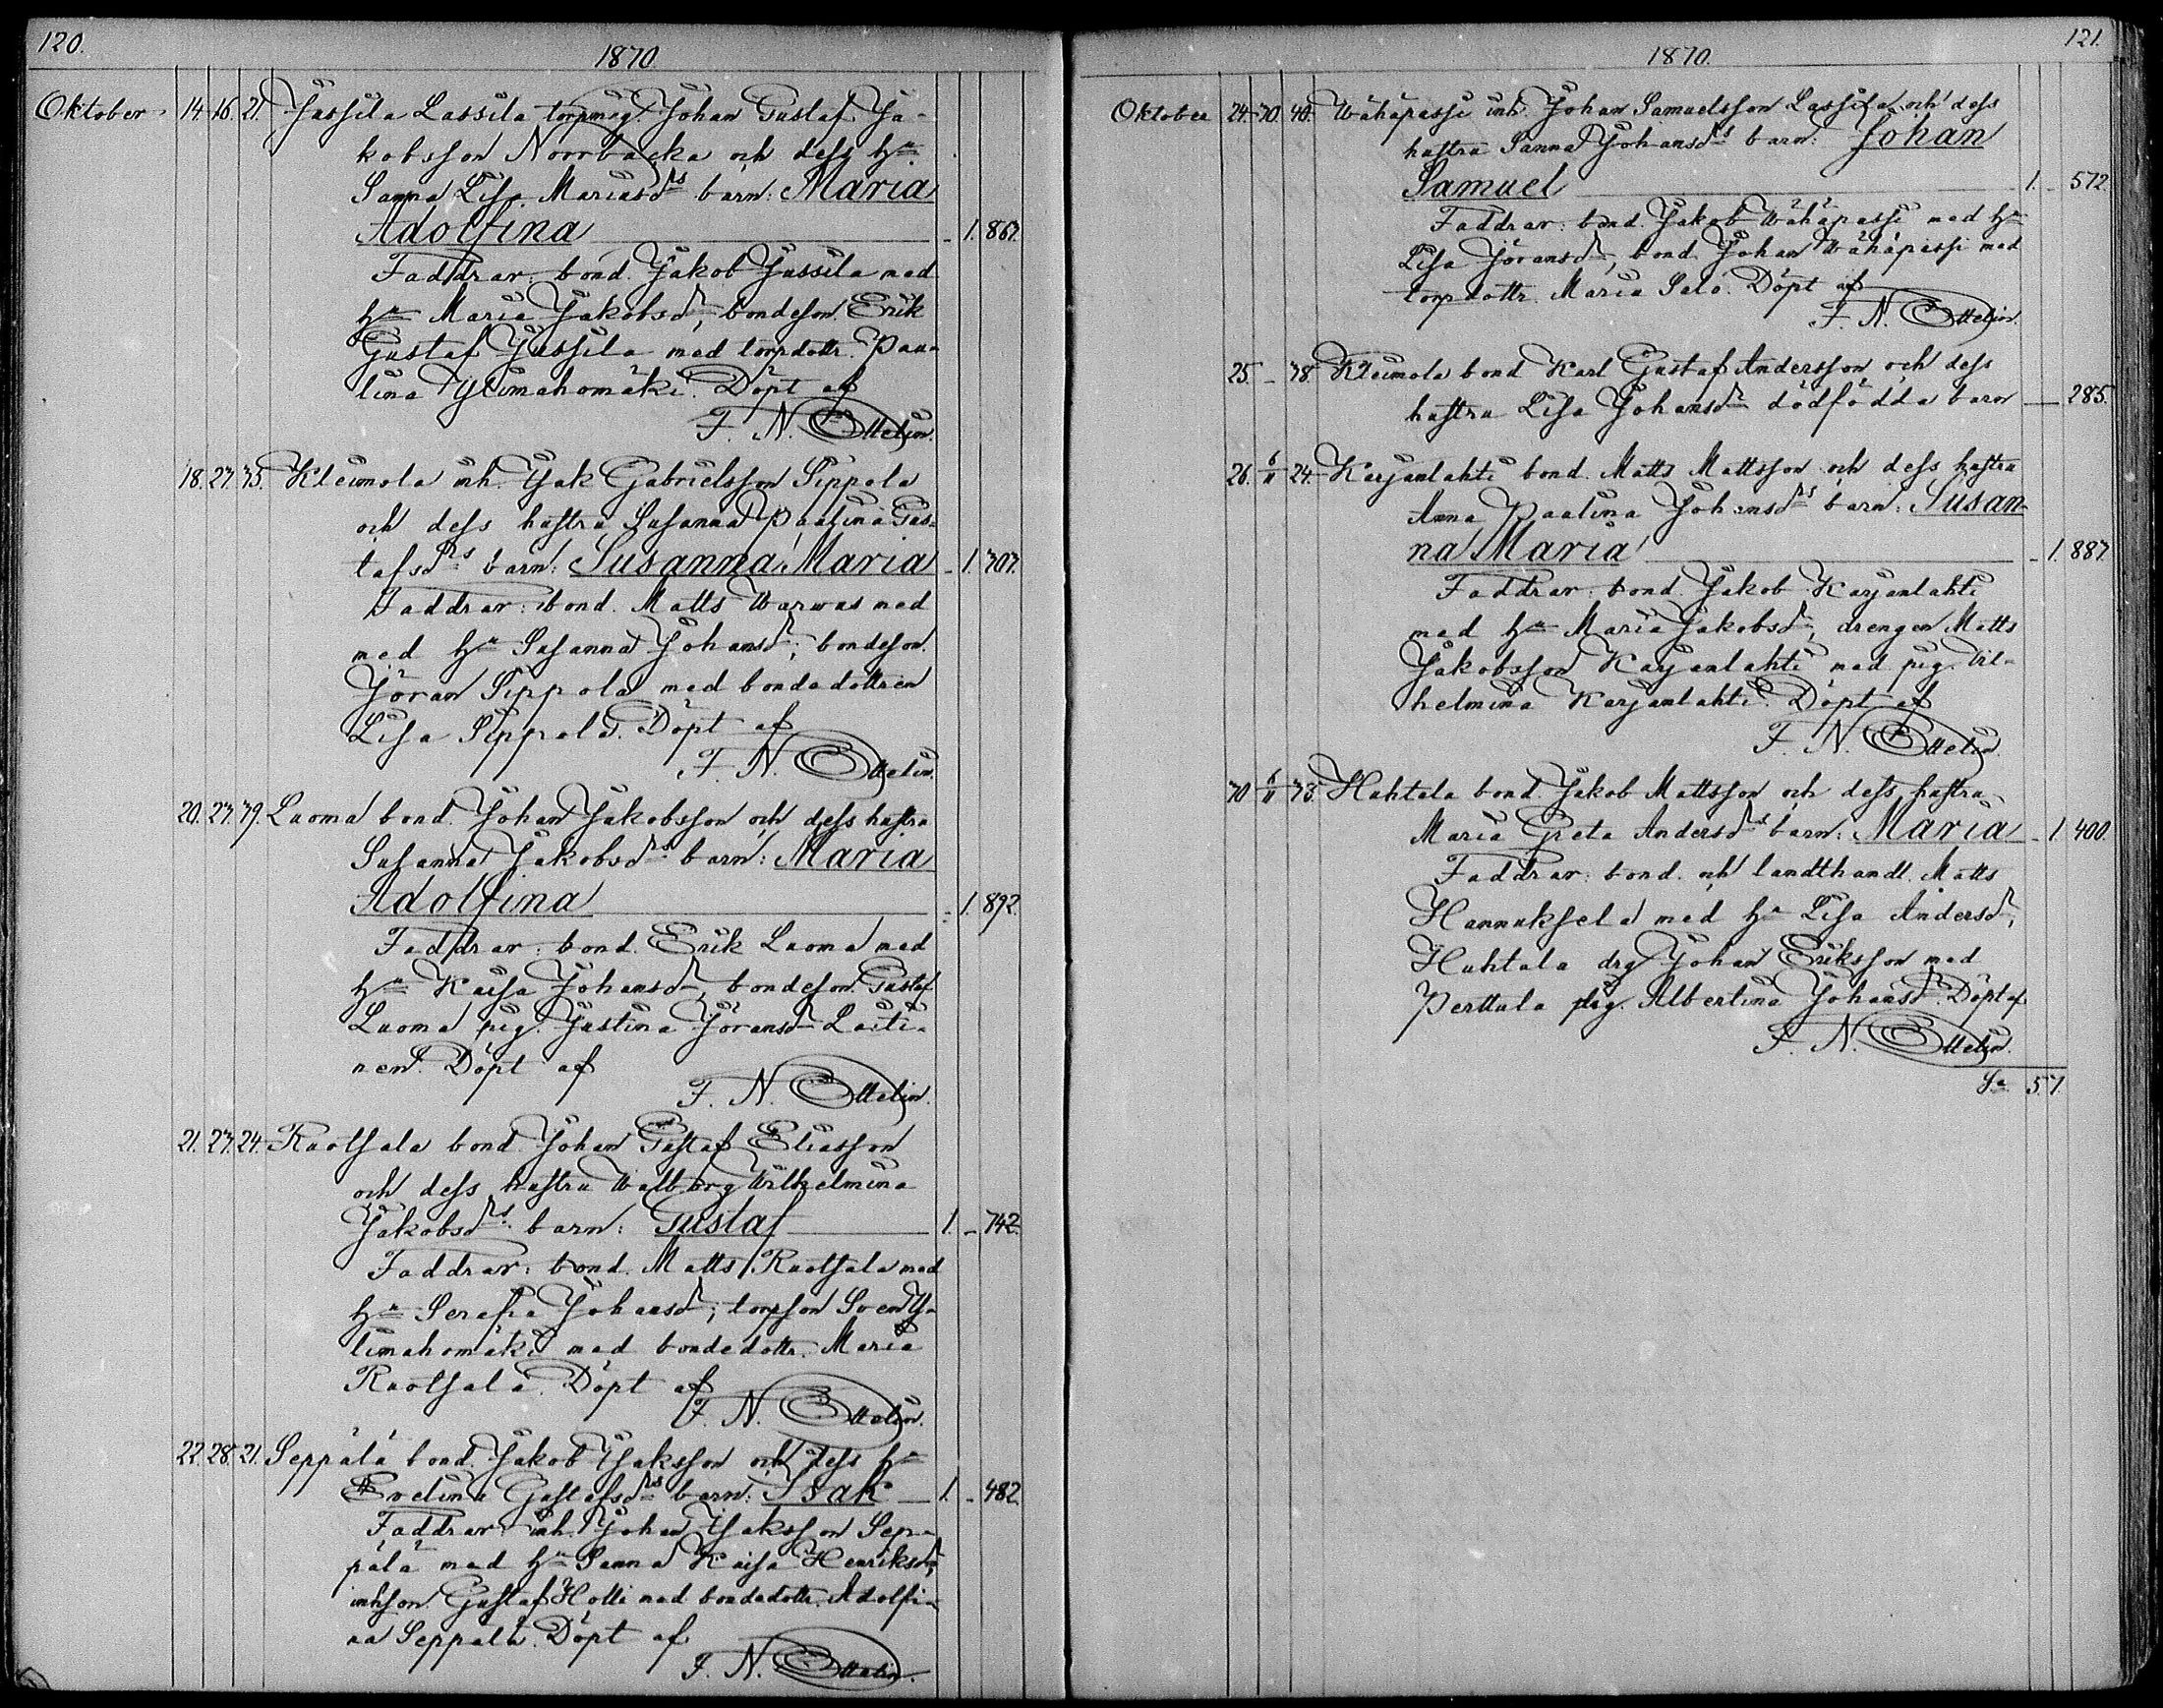 120.
1870.
Oktober 14. 16. 21. Jussila Lassila torpmåg. Johan Gustaf Ja-
kobsson Norrbacka och dess hu
Sanna Lisa Mariasdrs barn: Maria
Adolfina 1. 867.
Faddrar: bond. Jakob Jussila med
hu Maria Jakobsdr, bondeson. Erik
Gustaf Jussila med torpdottr. Pau-
lina Ylimahomäki. Döpt af
F. N. Ottelin.
18. 27. 75. Kleimola inh. Isak Gabrielsson Sippola
och dess hustru Susanna Paulina Gus-
tafsdrs barn: Susanna Maria 1. 707.
Faddrar: bond. Matts Warwas med
med hu Susanna Johansdr, bondeson.
Jöran Sippola med bondedottren
Lisa Sippola. Döpt af
F. N. Ottelin.
20. 27. 79. Luoma bond. Johan Jakobsson och dess hustru
Susanna Jakobsdrs barn: Maria
Adolfina 1. 892.
Faddrar: bond. Erik Luoma med
hu Kaisa Johansdr, bondeson. Gustaf
Luoma, pig. Justina Jöransdr Laiti-
nen. Döpt af
F. N. Ottelin.
21. 27. 24. Ruotsala bond. Johan Gustaf Eliasson
och dess hustru Walborg Wilhelmina
Jakobsdrs barn: Gustaf 1. 742.
Faddrar: bond. Matts Ruotsala med
hu Serafia Johansdr, torpson Sven Y-
limahomäki med bondedottr. Maria
Ruotsala. Döpt af
F. N. Ottelin.
22. 28. 21. Seppälä bond. Jakob Isaksson och dess hu
Evelina Gustafsdrs barn: Isak 1. 482.
Faddrar: inh. Johan Isaksson Sep-
pälä med hu Sanna Kaisa Henriksdr,
inhson. Gustaf Holli med bondedottr. Adolfi-
na Seppälä. Döpt af
F. N. Ottelin.
121.
1870.
Oktober 24. 30. 40. Wähäpassi inh. Johan Samuelsson Lassila och dess
hustru Sanna Johansdrs barn: Johan
Samuel 1. 572.
Faddrar: bond. Jakob Wähäpassi med hu
Lisa Jöransdr, bond. Johan Wähäpassi med
torpdottr. Maria Salo. Döpt af
F. N. Ottelin.
25. - 78. Kleimola bond Karl Gustaf Andersson och dess
hustru Lisa Johansdrs dödfödda barn 285.
26. 6/11 24. Karjanlahti bond. Matts Mattsson och dess hustru
Anna Paulina Johansdrs barn: Susan-
na Maria 1. 887.
Faddrar: bond. Jakob Karjanlahti
med hu Maria Jakobsdr, drengen Matts
Jakobsson Karjanlahti med pig. Vil-
helmina Karjanlahti. Döpt af
F. N. Ottelin.
30 6/11 73. Huhtala bond. Jakob Mattsson och dess hustru
Maria Greta Andersdrs barn: Maria 1. 400.
Faddrar: bond. och landthandl. Matts
Hannuksela med hu Lisa Andersdr,
Huhtala drg Johan Eriksson med
Perttula pig. Albertina Johansdr. Döpt af
F. N. Ottelin.
Sa 57.